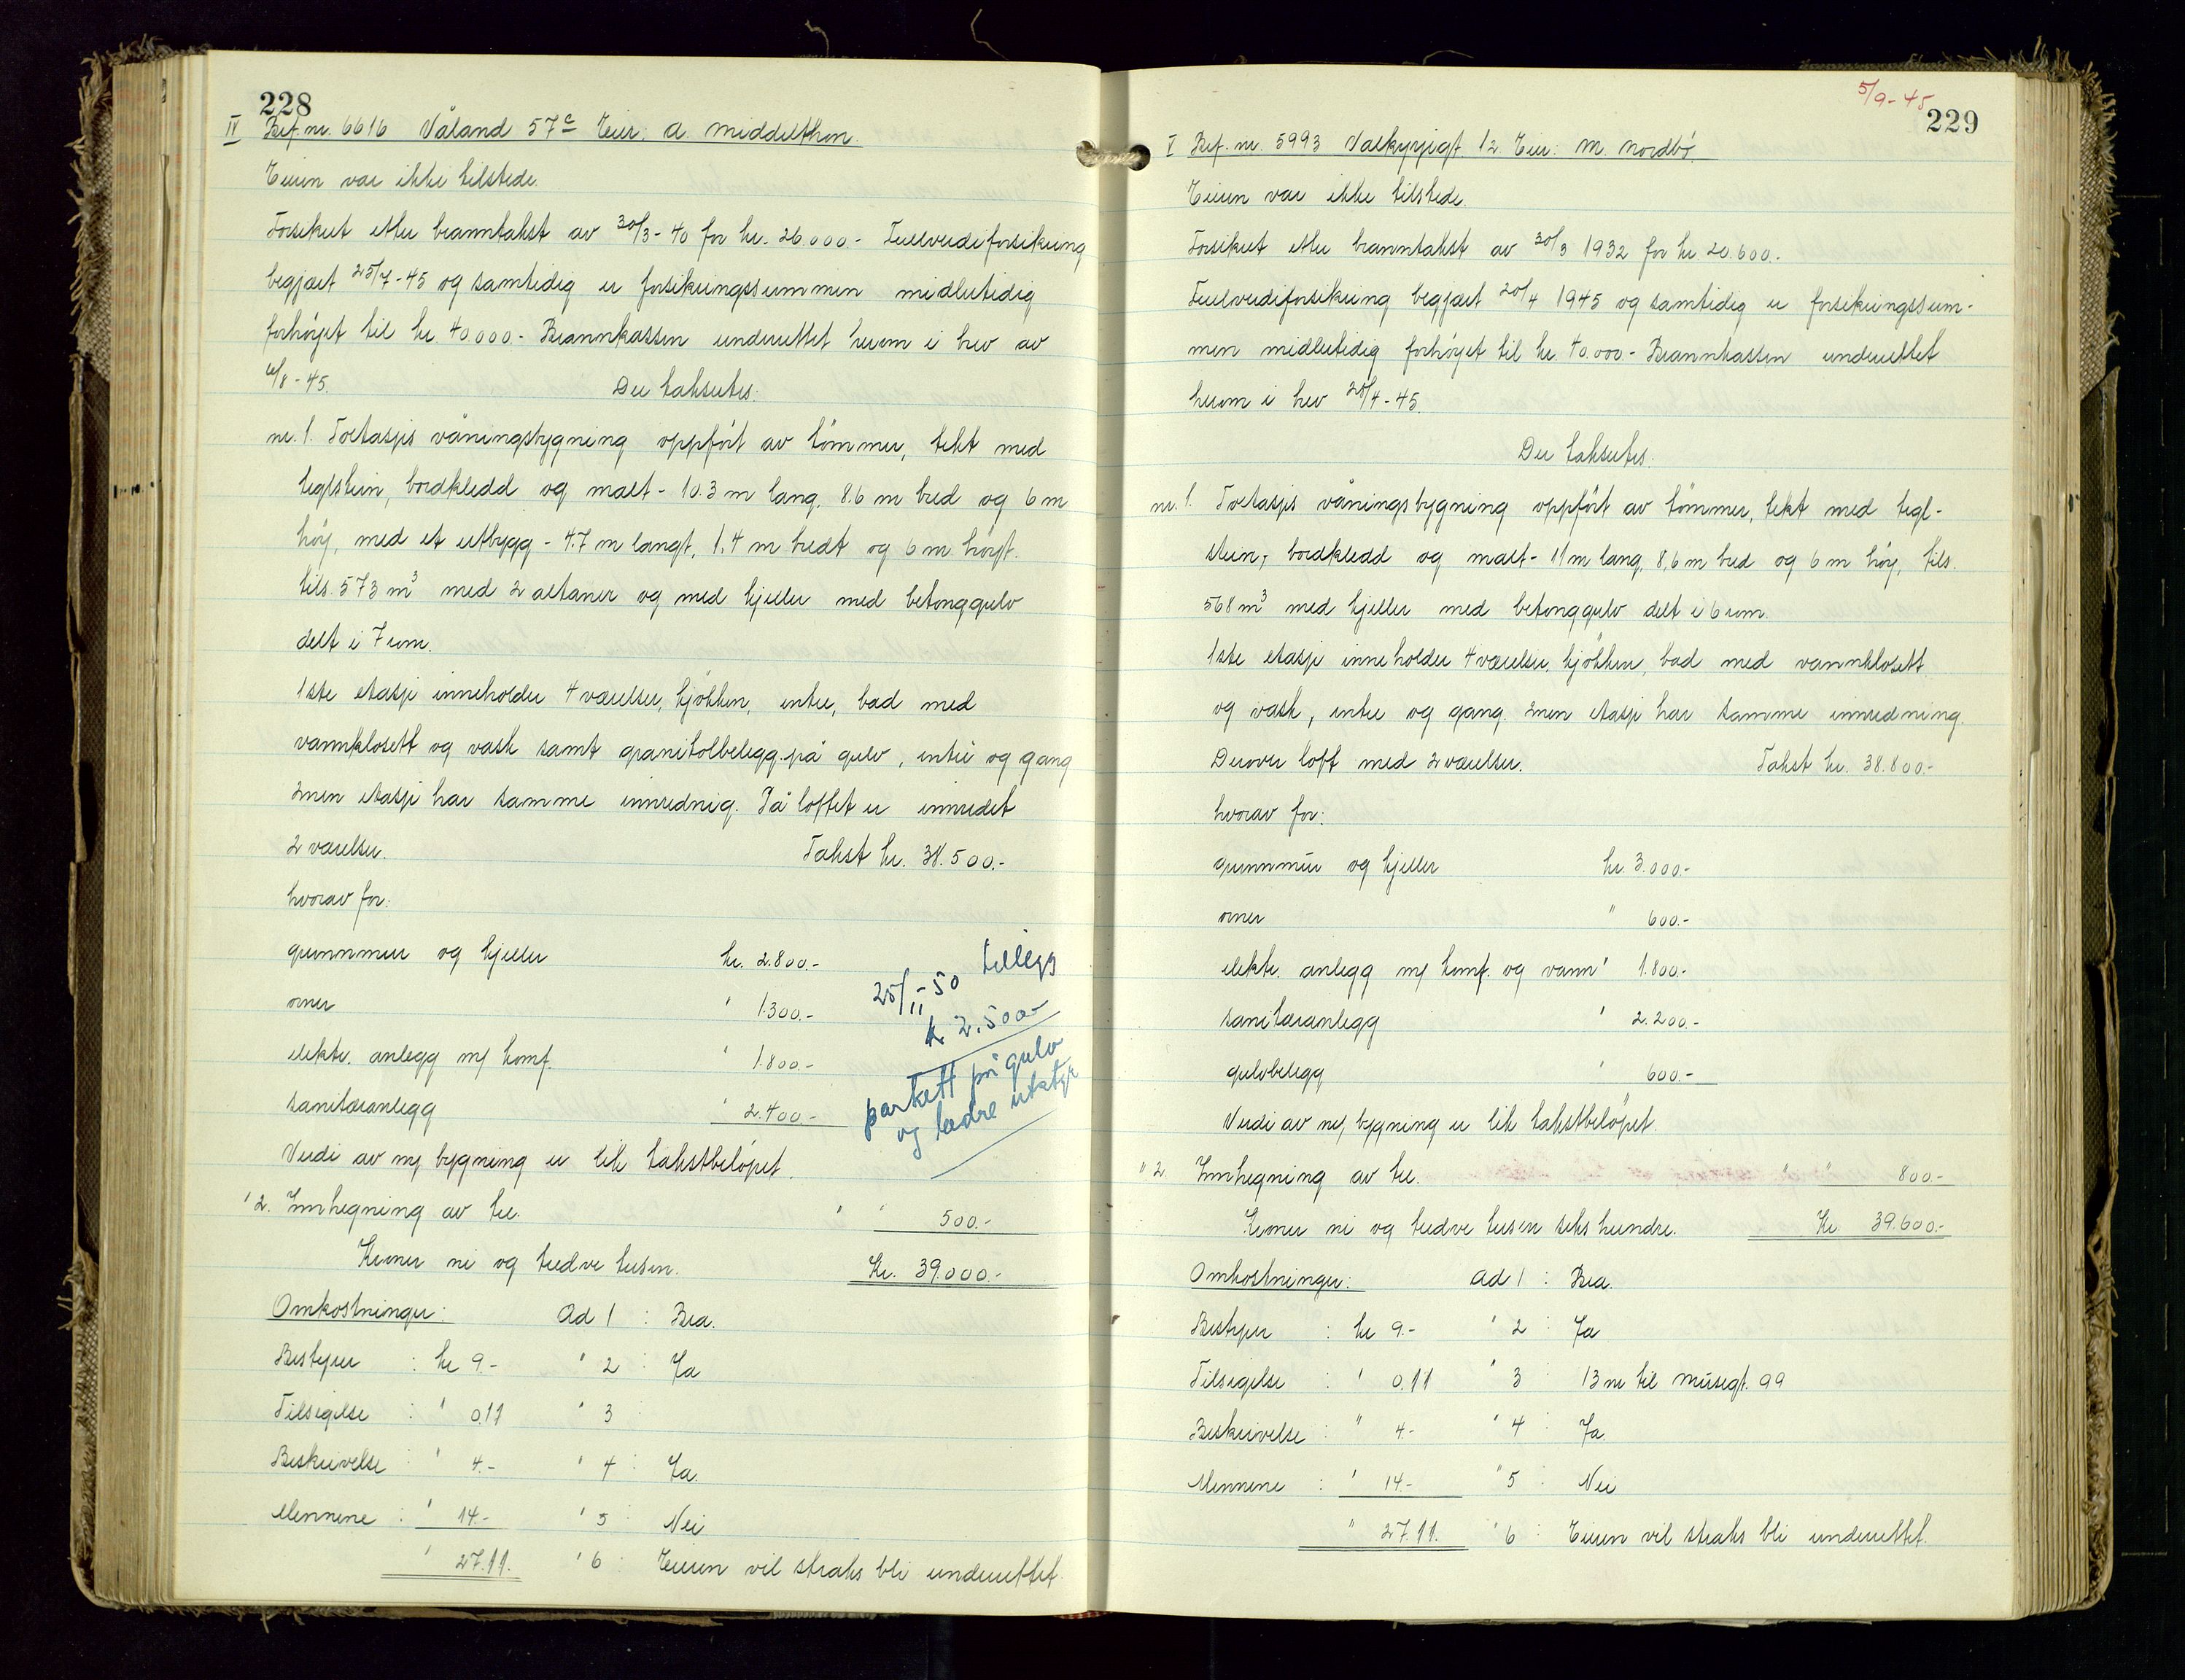 228
IV Brf. nr. 6616 Våland 57c Eier: A. Middelthon.
Eieren var ikke tilstede.
Forsikret etter branntakst av 30/3-40 for kr. 26.000.- Fullverdiforsikring
begjært 25/7-45 og samtidig er forsikringssummen midlertidig
forhöyet til kr 40.000.- Brannkassen underrettet herom i brev av
/8-45. Der takseres:
nr. 1. Toetasjes våningsbygning oppfört av tömmer, tekt med
teglstein, bordkledd og malt - 10.3 m lang, 8.6 m bred og 6 m
höy, med et utbygg - 4.7 m langt, 1.4 m bredt og 6 m höyt.
tils. 573 m³ med 2 altaner og med kjeller med betonggulv
delt i 7 rom.
1ste etasje inneholder 4 værelser, kjökken, entre, bad med
vannklosett og vask samt granitolbelegg på gulv, entre og gang
2nen etasje har samme innrednig. På loftet er innredet
2 værelser. Takst kr. 38.500.-
hvorav for:
grunnmur og kjeller kr. 2.800.-
ovner " 1.300.-
elektr. anlegg m/ komf. " 1.800.-
sanitæranlegg " 2.400.-
25/11-50 tillegg
k 2.500.-
parkett på gulv
og bedre utstyr
Verdi av ny bygning er lik takstbelöpet.
" 2. Innhegning av tre. " " 500.-
Kroner ni og tredve tusen. Kr. 39.000.-
Omkostninger: Ad 1 : Bra.
Bestyrer : kr 9.- " 2 : Ja
Tilsigelse : " 0.11 " 3 :
Beskrivelse : " 4.- " 4 : Ja.
Mennene : " 14.- " 5 : Nei
" 27.11. " 6 : Eieren vil straks bli underrettet.
5/9-45
229
V Brf. nr. 5993 Valkyrjegt. 12 Eier: M. Nordbö.
Eieren var ikke tilstede.
Forsikret etter branntakst av 30/3 1932 for kr. 20.600.-
Fullverdiforsikring begjært 20/4 1945 og samtidig er forsikringssum-
men midlertidig forhöyet til kr. 40.000.- Brannkassen underrettet
herom i brev 25/4-45.
Der takseres:
nr. 1. Toetasjes våningsbygning oppfört av tömmer, tekt med tegl-
stein, bordkledd og malt - 11 m lang, 8,6 m bred og 6 m höy, tils.
568 m³ med kjeller med betonggulv delt i 6 rom.
1ste etasje inneholder 4 værelser, kjökken, bad med vannklosett
og vask, entre og gang. 2nen etasje har samme innredning.
Derover loft med 2 værelser. Takst kr. 38.800.-
hvorav for:
grunnmur og kjeller kr. 3.000.-
ovner " 600.-
elektr. anlegg m/ komf. og vann " 1.800.-
sanitæranlegg " 2.200.-
gulvbelegg " 600.-
Verdi av ny bygning er lik takstbelöpet.
" 2. Innhegning av tre. " " 800.-
Kroner ni og tredve tusen seks hundre. Kr. 39.600.-
Omkostninger: Ad 1 : Bra.
Bestyrer : kr 9.- " 2 : Ja
Tilsigelse : " 0.11 " 3 : 13 m til Musegt. 99
Beskrivelse : " 4.- " 4 : Ja.
Mennene : " 14.- " 5 : Nei
" 27.11. " 6 : Eieren vil straks bli underrettet.